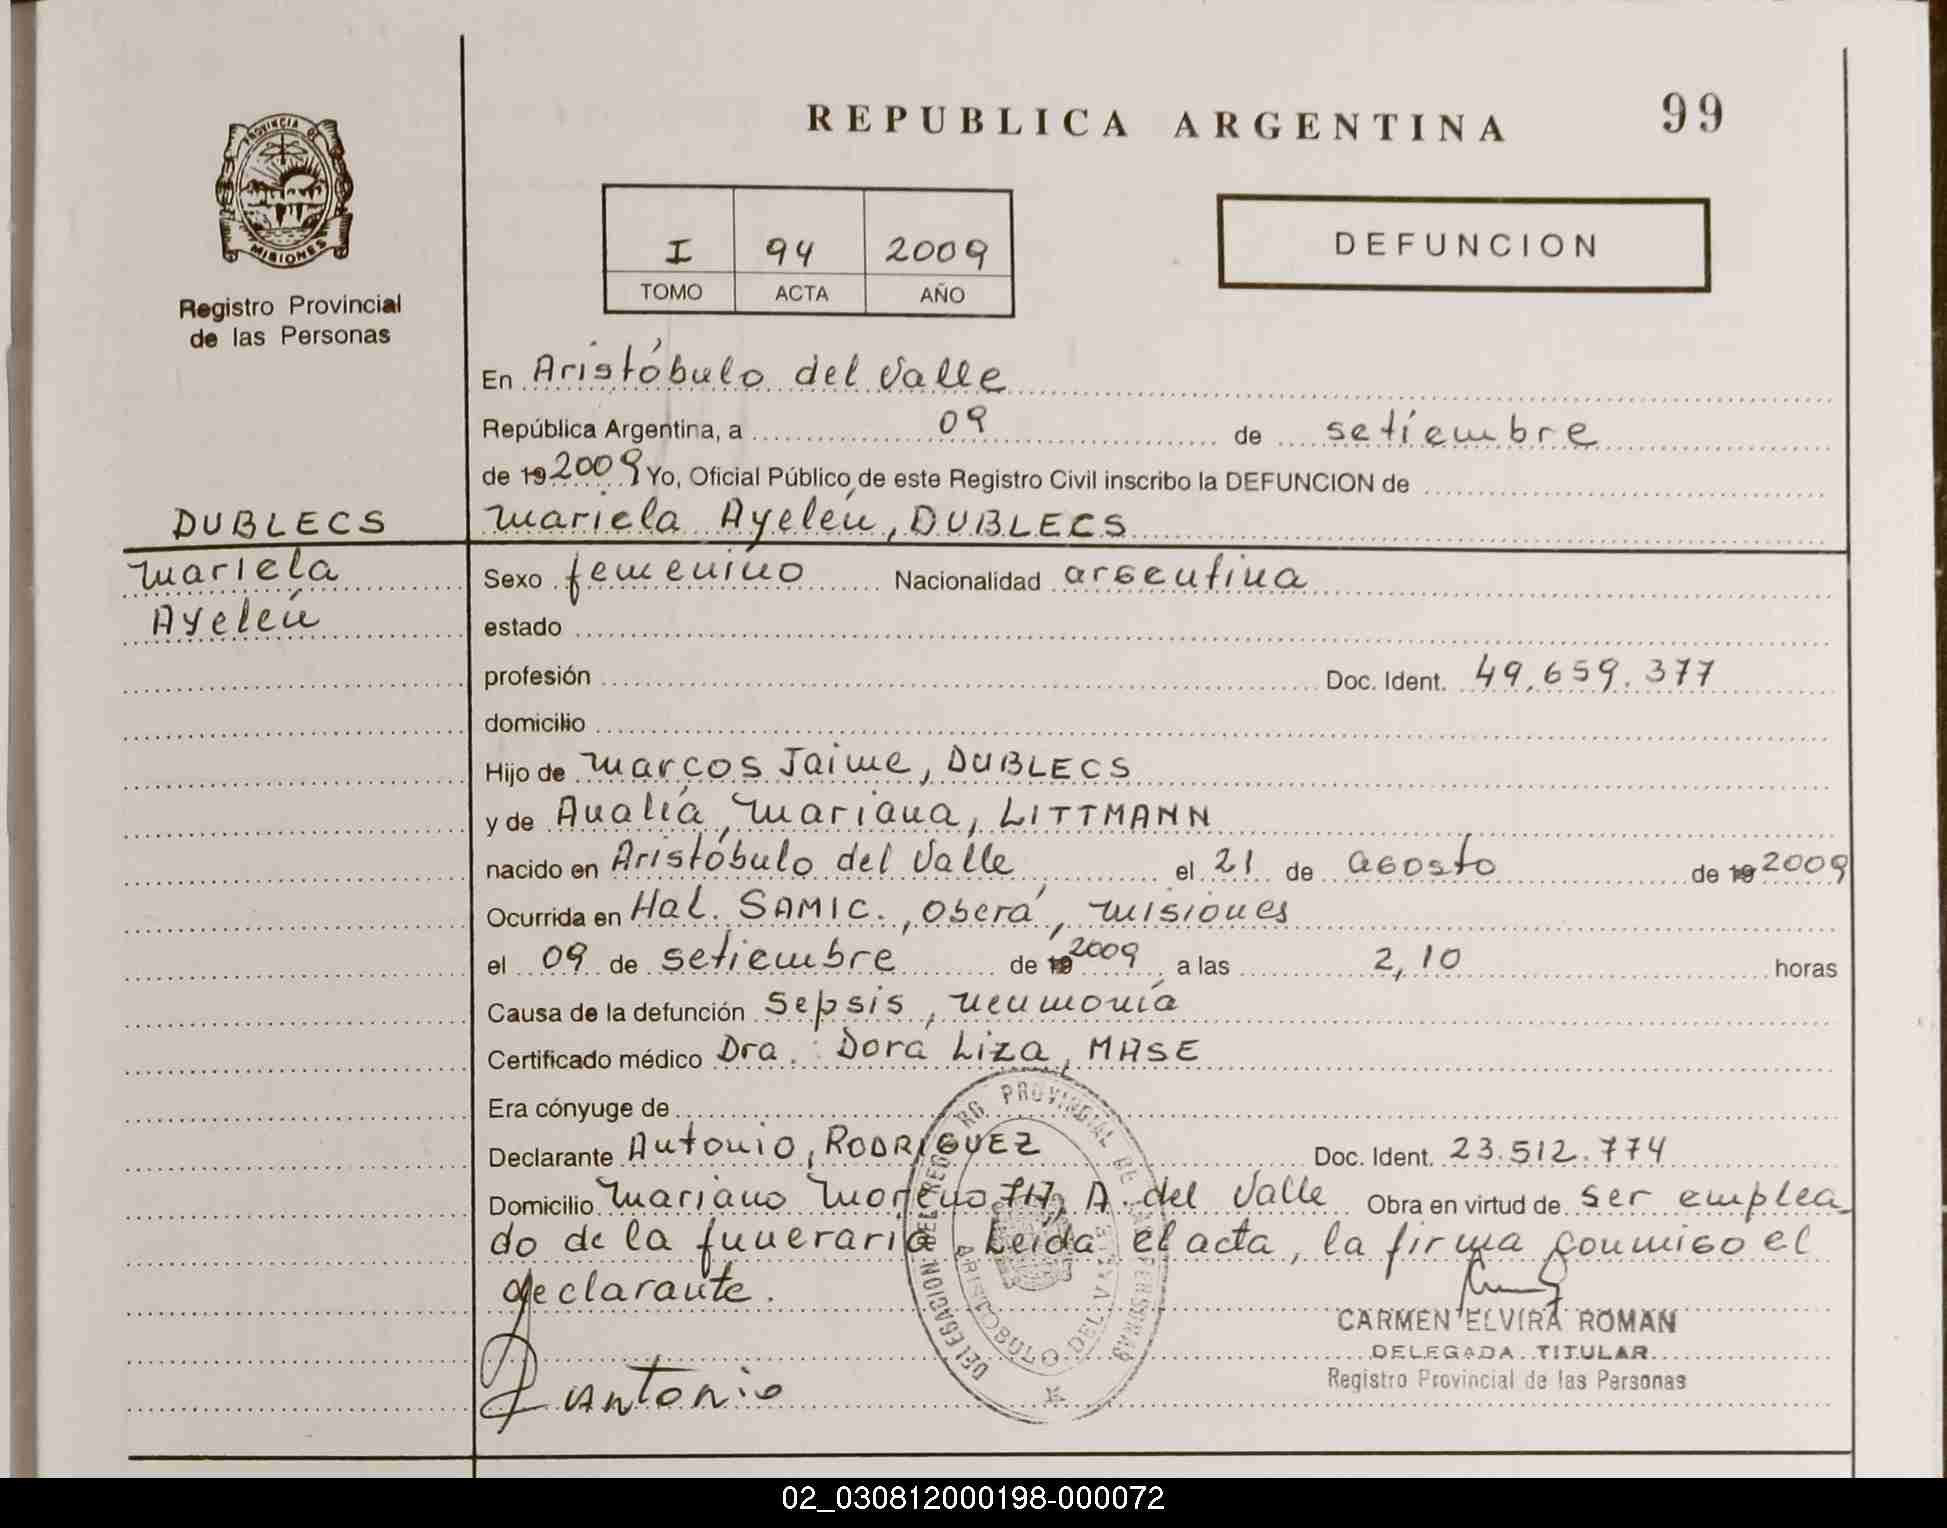 REPUBLICA ARGENTINA
99
PROVINCIA DE
MISIONES
Registro Provincial
de las Personas
I 94 2009
TOMO ACTA AÑO
DEFUNCION
En Aristóbulo del Valle
República Argentina, a 09 de setiembre
de 19 2009 Yo, Oficial Público de este Registro Civil inscribo la DEFUNCION de
DUBLECS
Mariela Ayelén, DUBLECS
Mariela
Ayelén
Sexo femenino Nacionalidad argentina
estado
profesión Doc. Ident. 49.659.377
domicilio
Hijo de Marcos Jaime, DUBLECS
y de Analía Mariana, LITTMANN
nacido en Aristóbulo del Valle, el 21 de agosto de 19 2009
Ocurrida en Hal. SAMIC., Oberá, Misiones
el 09 de setiembre de 19 2009 a las 2,10 horas
Causa de la defunción Sepsis, neumonía
Certificado médico Dra. Dora Liza, MASE
Era cónyuge de
Declarante Antonio, RODRIGUEZ Doc. Ident. 23.512.774
Domicilio Mariano Moreno 717, A. del Valle Obra en virtud de ser emplea
do de la funeraria. Leída el acta, la firma conmigo el
declarante.
Antonio
DELEGACION DEL REG. PROVINCIAL DE LAS PERSONAS
ARISTOBULO DEL VALLE
CARMEN ELVIRA ROMAN
DELEGADA TITULAR
Registro Provincial de las Personas
02_030812000198-000072